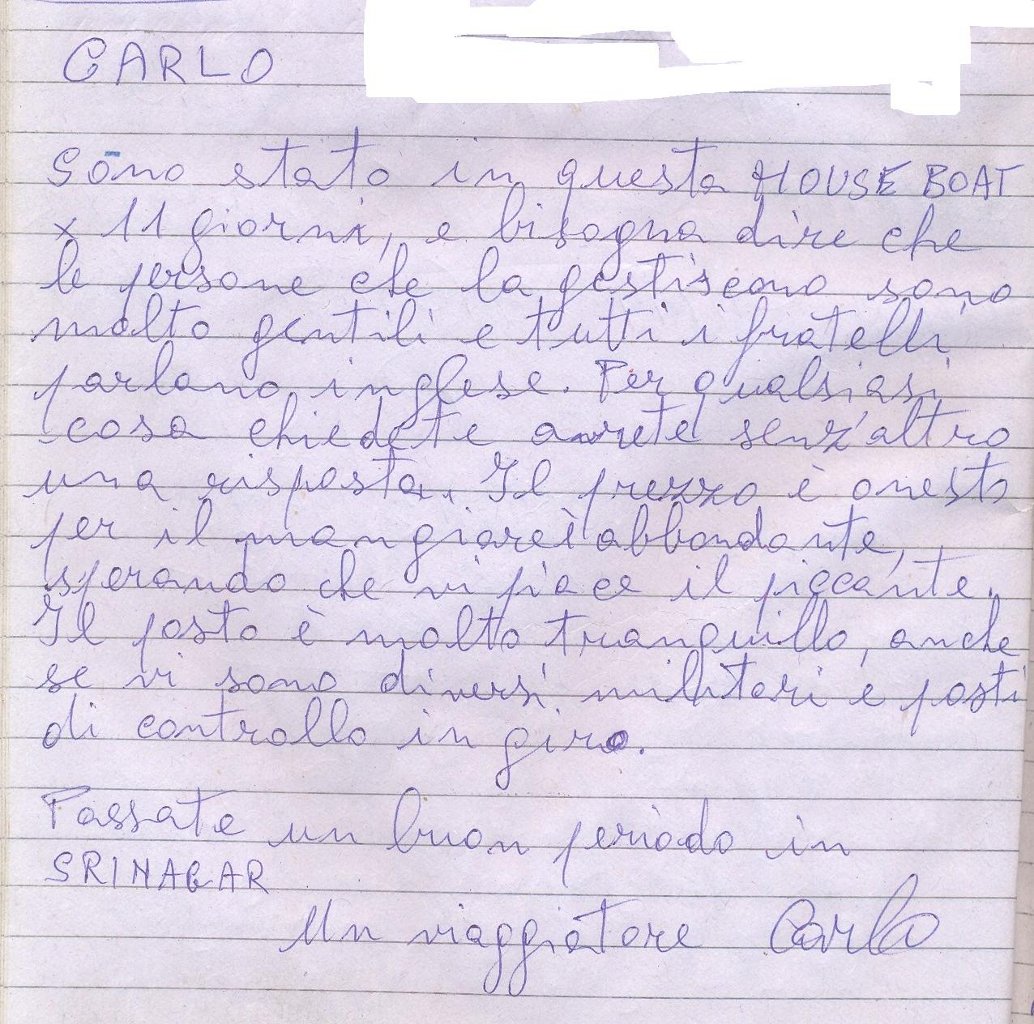 CARLO
Sono stato in questa HOUSE BOAT
x 11 giorni, e bisogna dire che
le persone che la gestiscono sono
molto gentili e tutti i fratelli
parlano inglese. Per qualsiasi
cosa chiedete avrete senz'altro
una risposta. Il prezzo è onesto
per il mangiare è abbondante,
sperando che vi piace il piccante.
Il posto è molto tranquillo, anche
se vi sono diversi militari e posti
di controllo in giro.
Passate un buon periodo in
SRINAGAR
Un viaggiatore Carlo